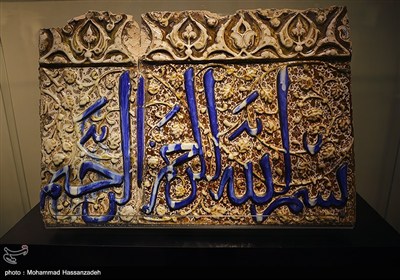 بسم الله الرحمن الرحیم
photo : Mohammad Hassanzadeh